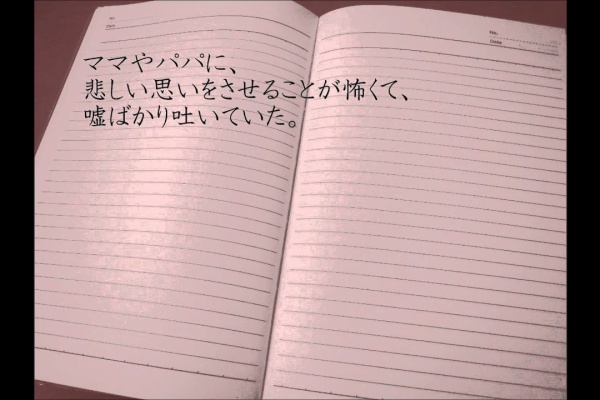 No.
Date
No.
Date
ママやパパに、
悲しい思いをさせることが怖くて、
嘘ばかり吐いていた。